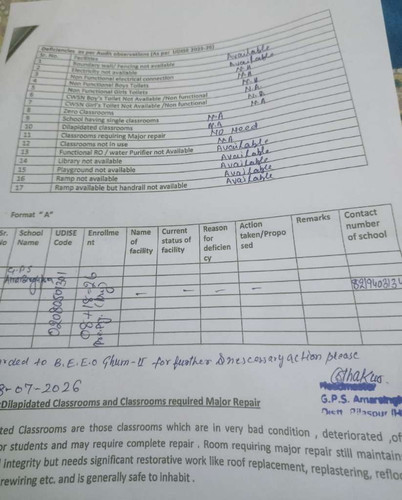 Deficiencies as per Audit observations (As per UDISE 2025-26)
Sr. No. Facilities
1 Boundary wall/ Fencing not available Available
2 Electricity not available Available
3 Non Functional electrical connection N.A
4 Non Functional Boys Toilets N.A
5 Non Functional Girls Toilets N.A
6 CWSN Boy's Toilet Not Available /Non functional N.A
7 CWSN Girl's Toilet Not Available /Non functional N.A
8 Zero Classrooms
9 School having single classrooms N.A
10 Dilapidated classrooms N.A
11 Classrooms requiring Major repair NO Need
12 Classrooms not in use N.A
13 Functional RO / water Purifier not Available Available
14 Library not available Available
15 Playground not available Available
16 Ramp not available Available
17 Ramp available but handrail not available Available
Format "A"
Sr. No School Name UDISE Code Enrollment Name of facility Current status of facility Reason for deficiency Action taken/Proposed Remarks Contact number of school
G.P.S
- - - - -
to B.E.E.O Ghum-II for further & necessary action please
-07-2026
Headmaster
G.P.S. Amarsingh
Dilapidated Classrooms and Classrooms required Major Repair
ted Classrooms are those classrooms which are in very bad condition , deteriorated ,of
or students and may require complete repair . Room requiring major repair still maintain
integrity but needs significant restorative work like roof replacement, replastering, refloo
rewiring etc. and is generally safe to inhabit .